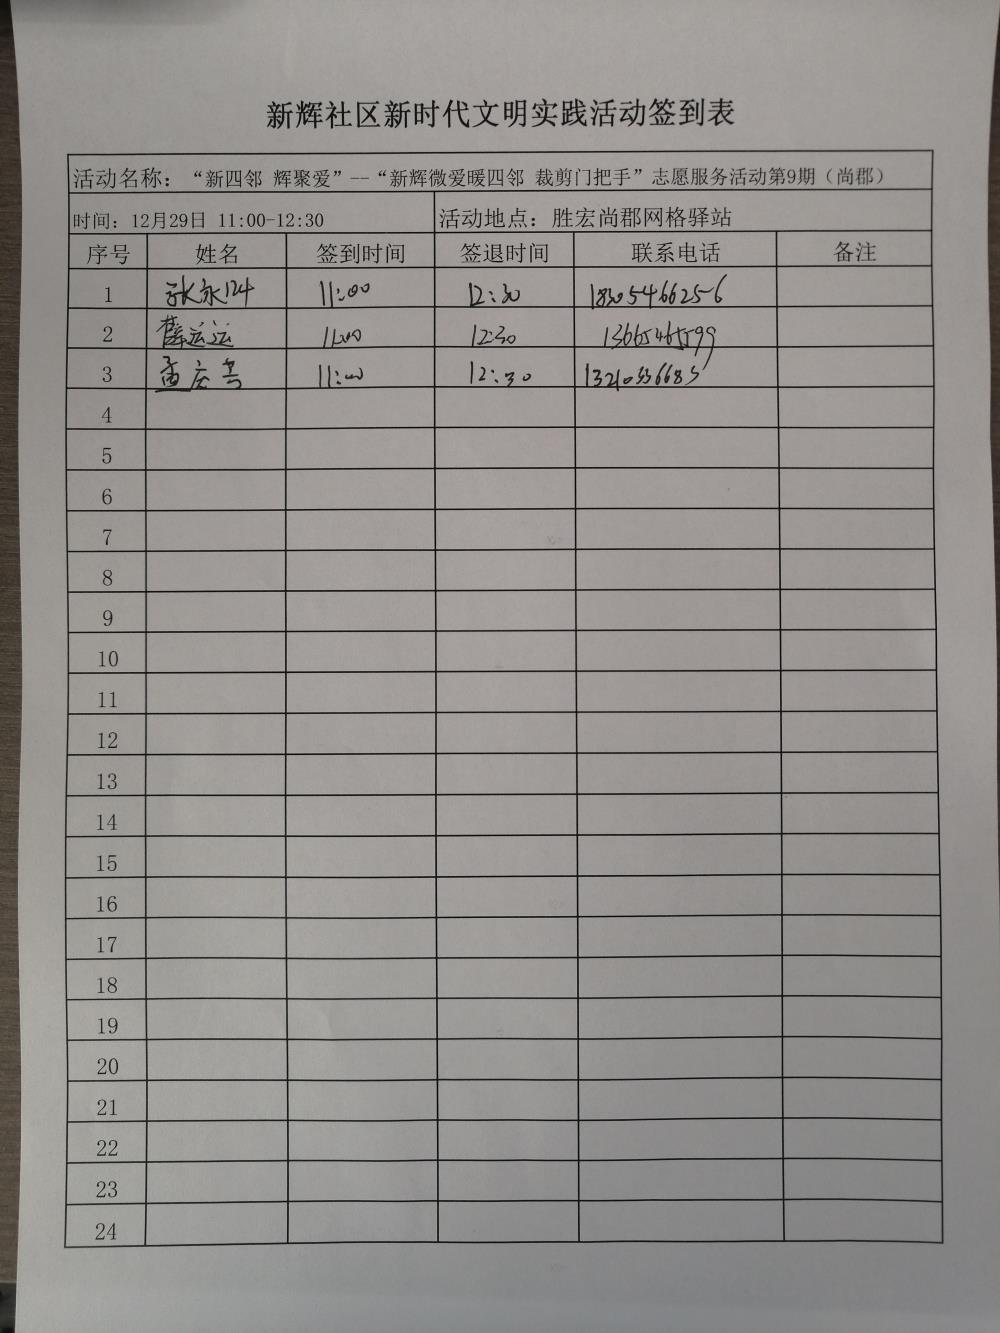 新辉社区新时代文明实践活动签到表
活动名称：“新四邻 辉聚爱”--“新辉微爱暖四邻 裁剪门把手”志愿服务活动第9期（尚郡）
时间：12月29日 11:00-12:30 活动地点：胜宏尚郡网格驿站
序号 姓名 签到时间 签退时间 联系电话 备注
1 张永 11:00 12:30 18305466256
2 薛运运 11:00 12:30 13665465599
3 孟庆 11:00 12:30 13210336683
4
5
6
7
8
9
10
11
12
13
14
15
16
17
18
19
20
21
22
23
24